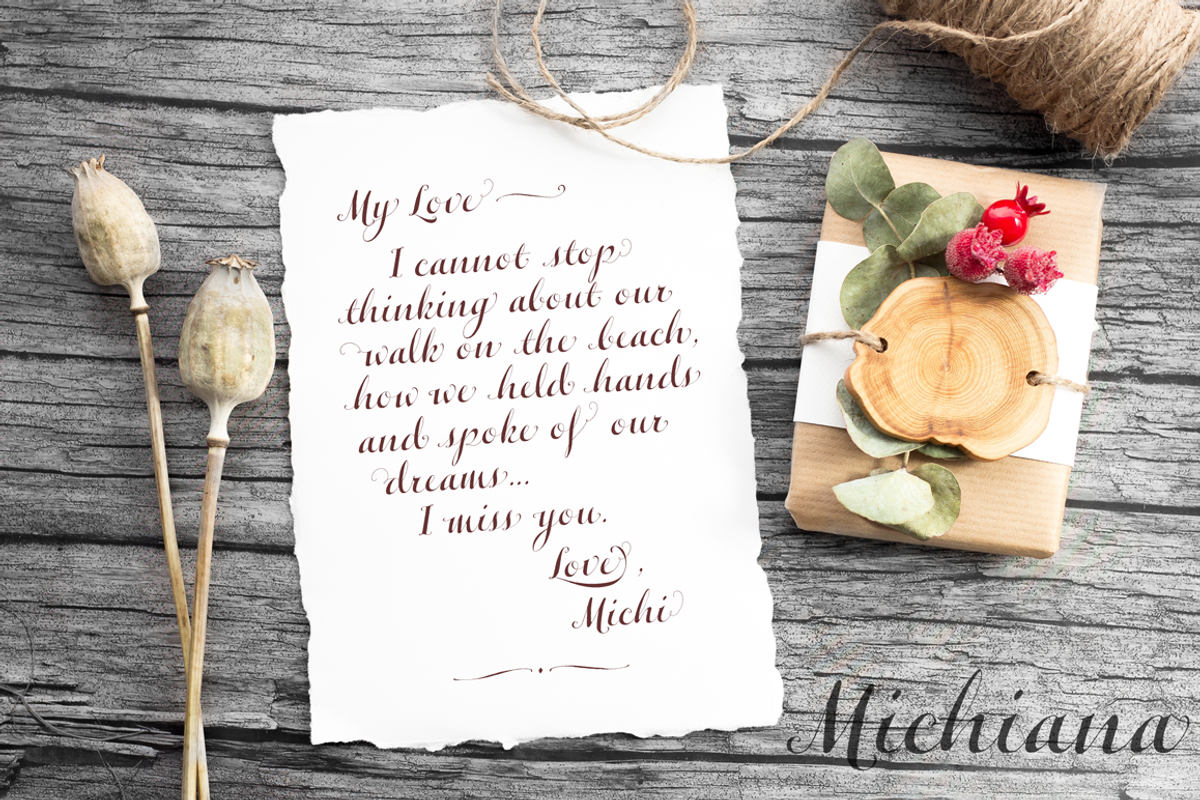 My Love
I cannot stop
thinking about our
walk on the beach,
how we held hands
and spoke of our
dreams...
I miss you.
Love,
Michi
Michiana